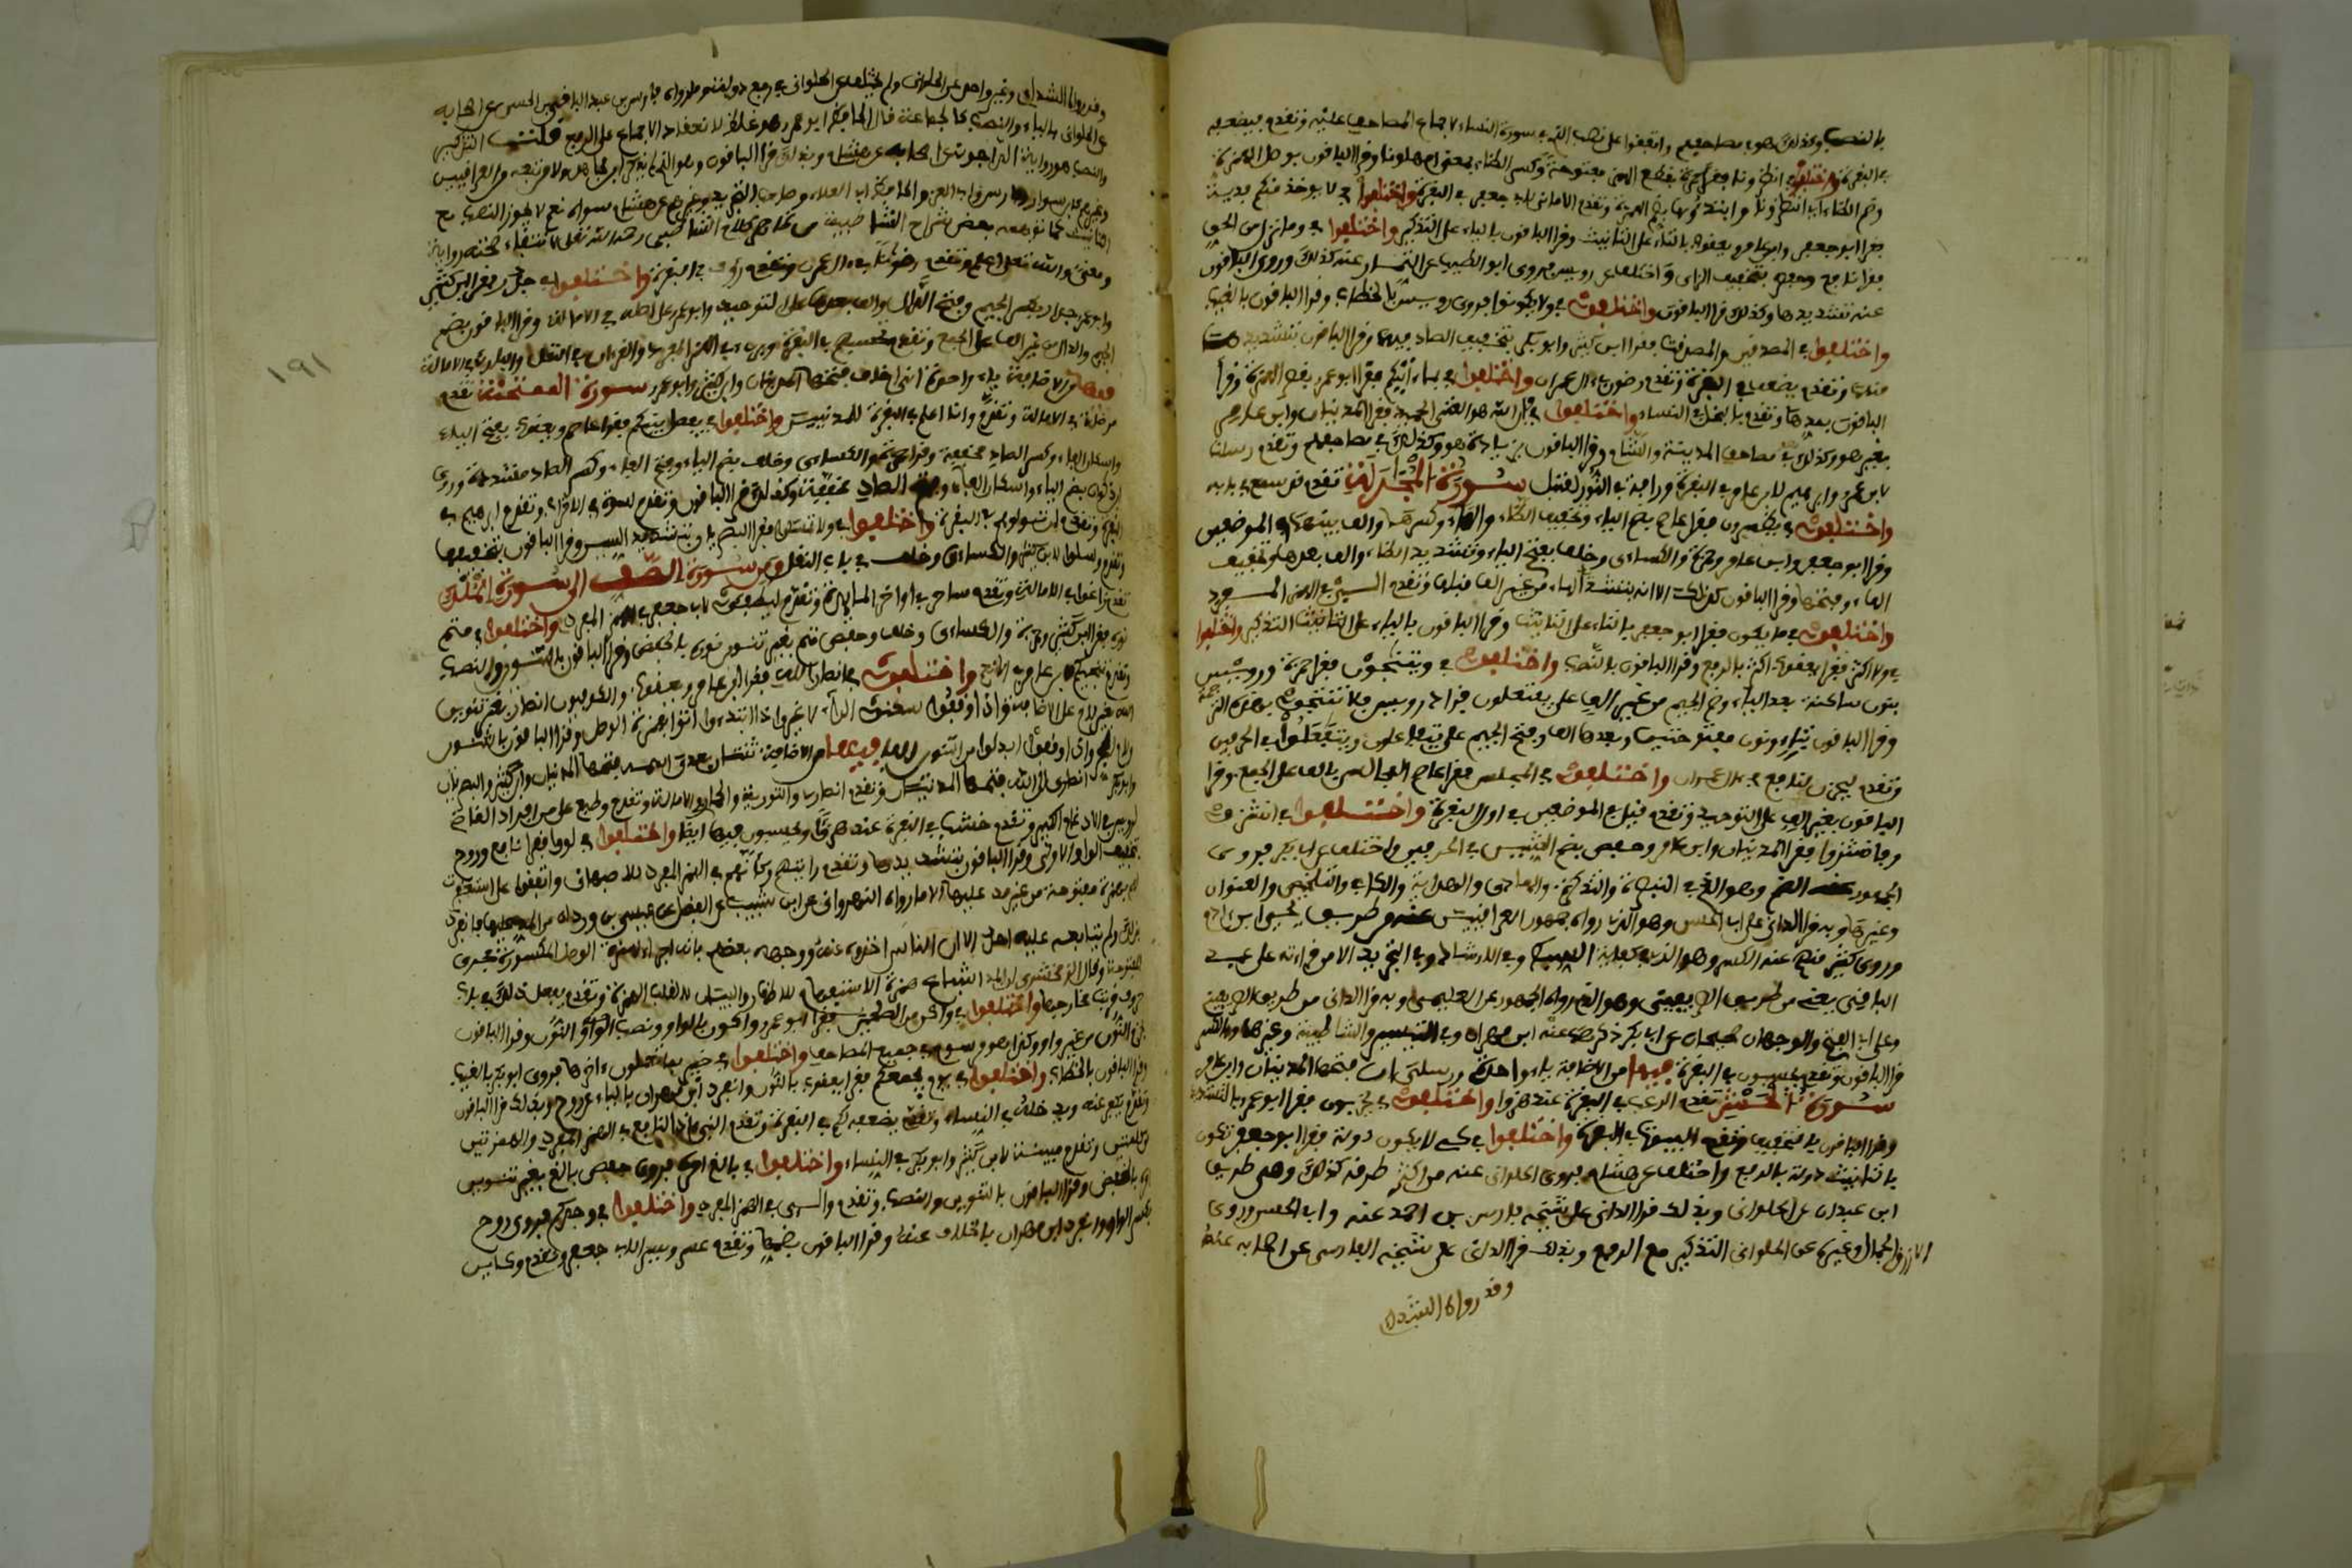 بالنصب وكذلك هو في مصاحفهم واتفقوا على نصب الذي في سورة النساء لاجماع المصاحف عليه وتقدم فيضعفه
في البقرة واختلفوا في انظرونا فقرا حمزة بقطع الهمزة مفتوحة وكسر الظاء بمعنى امهلونا وقرا الباقون بوصل الهمزة
وضم الظاء اي انتظرونا وابتداؤها بضم الهمزة وتقدم الاماني لابي جعفر في البقرة واختلفوا في لا يوخذ منكم فدية
فقرا ابو جعفر وابن عامر ويعقوب بالتاء على التانيث وقرا الباقون بالياء على التذكير واختلفوا في وما نزل من الحق
فقرا نافع وحفص بتخفيف الزاي واختلف عن رويس فروى ابو الطيب عن التمار عنه كذلك وروى الباقون
عنه تشديدها وكذلك قرا الباقون واختلفوا في ولا يكونوا فروى رويس بالخطاب وقرا الباقون بالغيب
واختلفوا في المصدقين والمصدقات فقرا ابن كثير وابو بكر بتخفيف الصاد فيهما وقرا الباقون بتشديدها
منهما وتقدم يضعف في البقرة وتقدم رضوان في ال عمران واختلفوا في بما اتيكم فقرا ابو عمرو بقصر الهمزة وقرا
الباقون بمدها وتقدم بالبخل في النساء واختلفوا في فان الله هو الغني الحميد فقرا المدنيان وابن عامر
بغير هو وكذلك في مصاحف المدينة والشام وقرا الباقون بزيادة هو وكذلك في مصاحفهم وتقدم رسلنا
لابي عمرو وابرهيم لابن عامر في البقرة ورافة في النور لقنبل سورة المجادلة تقدم قد سمع في بابه
واختلفوا في يظهرون فقرا عاصم بضم الياء وتخفيف الظاء والهاء وكسرها والف بينهما في الموضعين
وقرا ابو جعفر وابن عامر وحمزة والكساءى وخلف بفتح الياء وتشديد الظاء والف بعدها وتخفيف
الهاء وفتحها وقرا الباقون كذلك الا انه بتشديد الهاء من غير الف قبلها وتقدم الىئ في الهمز المفرد
واختلفوا في ما يكون فقرا ابو جعفر بالتاء على التانيث وقرا الباقون بالياء على التذكير واختلفوا
في ولا اكثر فقرا يعقوب اكثر بالرفع وقرا الباقون بالنصب واختلفوا في ويتنجون فقرا حمزة ورويس
بنون ساكنة بعد الياء وضم الجيم من غير الف على يفتعلون فزاد رويس فلا تنتجوا بهذه الترجمة
وقرا الباقون بتاء ونون مفتوحتين وبعدها الف وفتح الجيم على يتفاعلون ويتفعلوا في الحرفين
وتقدم ليحزن لنافع في ال عمران واختلفوا في المجلس فقرا عاصم المجالس بالف على الجمع وقرا
الباقون بغير الف على التوحيد وتقدم قيل في الموضعين في اول البقرة واختلفوا في انشزوا
فانشزوا فقرا المدنيان وابن عامر وحفص بضم الشين في الحرفين واختلف عن ابي بكر فروى
الجمهور عنه الضم وهو الذي في التبصرة والتذكرة والهادي والهداية والكافي والتلخيص والعنوان
وغيرها وبه قرا الداني على ابي الحسن وهو الذي رواه جمهور العراقيين عنه من طريق يحيى ابن ادم
وروى كثير منهم عنه الكسر وهو الذي في كفاية السبط وفي الارشاد وفي التجريد الا من قراءته على عبد
الباقي يعني من طريق الصريفيني وهو الذي رواه الجمهور عن العليمي وبه قرا الداني من طريق الصريفيني
وعلى ابي الفتح والوجهان صحيحان عن ابي بكر ذكرهما عنه ابن مهران وفي التيسير والشاطبية وغيرها وبالكسر
قرا الباقون وتقدم يحسبون في البقرة فيها من الاضافة ياء واحدة ورسلي ان فتحها المدنيان وابن عامر
سورة الحشر تقدم الرعب في البقرة عند هزوا واختلفوا في يخربون فقرا ابو عمرو بالتشديد
وقرا الباقون بالتخفيف وتقدم البيوت في البقرة واختلفوا في كي لا يكون دولة فقرا ابو جعفر تكون
بالتانيث دولة بالرفع واختلف عن هشام فروى الحلواني عنه من اكثر طرقه كذلك وهي طريق
ابن عبدان عن الحلواني وبذلك قرا الداني على شيخه فارس بن احمد عنه وابي الحسن وروى
الازرق الجمال وغيره عن الحلواني التذكير مع الرفع وبذلك قرا الداني على شيخه الفارسي عن اصحابه عنه
وقد رواه الشذاي
١٩١
وقد رواه الشذاي وغير واحد عن الحلواني ولم يختلف عن الحلواني في رفع دولة وما رواه فارس بن عبد الباقي بن الحسن عن اصحابه
عن الحلواني بالياء والنصب كالجماعة قال الحافظ ابو عمرو وهو غلط لانعقاد الاجماع على الرفع قلت التذكير
والنصب هو رواية الداجوني عن اصحابه عن هشام وبذلك قرا الباقون وهو الذي لم يذكر ابن مجاهد ولا من تبعه من العراقيين
وغيرهم كابن سوار وابي العز والحافظ ابي العلاء وصاحب التجريد وغيرهم عن هشام سواه نعم لا يجوز النصب مع
التانيث كما توهمه بعض شراح الشاطبية من ظاهر كلام الشاطبي رحمه الله تعالى لانتفاء صحته رواية
ومعنى والله تعالى اعلم وتقدم ورضوانا في ال عمران وتقدم رؤف في البقرة واختلفوا في جدر فقرا ابن كثير
وابو عمرو جدار بكسر الجيم وفتح الدال والف بعدها على التوحيد وابو عمرو على اصله في الامالة وقرا الباقون بضم
الجيم والدال من غير الف على الجمع وتقدم تحسبهم في البقرة وبريء في الهمز المفرد والقرءان في النقل والبارئ في الامالة
فيها من الاضافة ياء واحدة اني اخاف فتحها المدنيان وابن كثير وابو عمرو سورة الممتحنة تقدم
مرضاتي في الامالة وتقدم وانا اعلم في البقرة للمدنيين واختلفوا في يفصل بينكم فقرا عاصم ويعقوب بفتح الياء
واسكان الفاء وكسر الصاد مخففة وقرا حمزة والكساءى وخلف بضم الياء وفتح الفاء وكسر الصاد مشددة وروى
ابن ذكوان بضم الياء وفتح الفاء والصاد مشددة
البقرة وتقدم واختلفوا في ولا تمسكوا فقرا البصريان بتشديد السين وقرا الباقون بتخفيفها
وتقدم وسلوا لابن كثير والكساءى وخلف في باب النقل ومن سورة الصف الى سورة الملك
تقدم زاغوا في الامالة وتقدم ساحر في اواخر المايدة وتقدم ليطفوا لابي جعفر في الهمز المفرد واختلفوا في متم
نوره فقرا ابن كثير وحمزة والكساءى وخلف وحفص متم بغير تنوين نوره بالخفض وقرا الباقون بالتنوين والنصب
وتقدم تنجيكم لابن عامر في الانعام واختلفوا في انصار الله فقرا ابن عامر ويعقوب والكوفيون انصار بغير تنوين
الله بغير لام على الاضافة واذا وقفوا سكنوا الراء لا غير واذا ابتدءوا اتوا بهمزة الوصل وقرا الباقون بالتنوين
ولام الجر واذا وقفوا ابدلوا من التنوين الفا فيها من الاضافة ثنتان بعدي اسمه فتحها المدنيان وابن كثير والبصريان
وابو بكر انصاري الى الله فتحها المدنيان وتقدم انصاري والتورية والحمار في الامالة وتقدم وطبع على من افراد القاضي
لرويس في الادغام الكبير وتقدم خشب في البقرة عند هزوا ويحسبون فيها ايضا واختلفوا في لووا فقرا نافع وروح
بتخفيف الواو الاولى وقرا الباقون بتشديدها وتقدم رايتهم وكانهم في الهمز المفرد للاصبهاني واتفقوا على استغفرت
لهم بهمزة مفتوحة من غير مد عليها الا ما رواه النهرواني عن ابن شبيب عن الفضل عن عيسى بن وردان من المد عليها فانفرد
بذلك ولم يتابعه عليه احد الا ان الناس اخذوه عنه ووجهه بعضهم بانه اجراء لهمزة الوصل المكسورة مجرى
المفتوحة وقال الزمخشري ان المد اشباع همزة الاستفهام للاظهار والبيان لا لقلب الهمزة وتقدم يفعل ذلك في باب
حروف قربت مخارجها واختلفوا في واكن من الصالحين فقرا ابو عمرو واكون بالواو ونصب النون وقرا الباقون
بجزم النون من غير واو وكذا هو مرسوم في جميع المصاحف واختلفوا في خبير بما تعملون اخرها فروى ابو بكر بالغيب
وقرا الباقون بالخطاب واختلفوا في يوم يجمعكم فقرا يعقوب بالنون وانفرد ابن مهران بالياء عن روح وبذلك قرا الباقون
وتقدم يكفر عنه ويدخله في النساء وتقدم يضعفه لكم في البقرة وتقدم النبي اذا لنافع في الهمز المفرد والهمزتين
من كلمتين وتقدم مبينة لابن كثير وابي بكر في النساء واختلفوا في بالغ امره فروى حفص بالغ بغير تنوين
امره بالخفض وقرا الباقون بالتنوين والنصب وتقدم والىئ في الهمز المفرد واختلفوا في وجدكم فروى روح
بكسر الواو وانفرد ابن مهران بالخلاف عنه وقرا الباقون بضمها وتقدم عسر ويسر لابي جعفر وتقدم وكاين